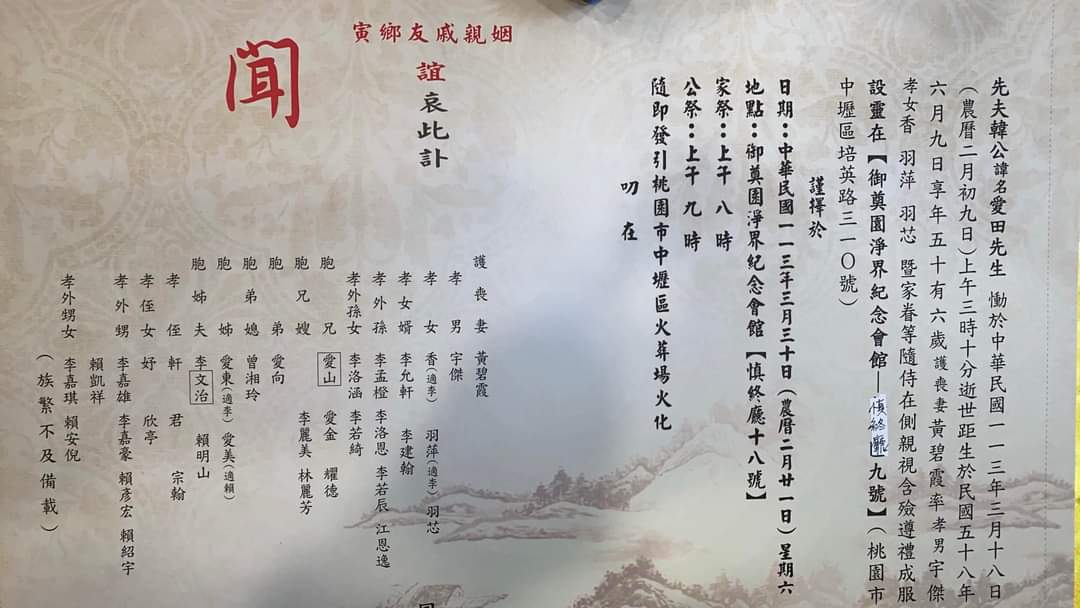 先夫韓公諱名愛田先生 慟於中華民國一一三年三月十八日
（農曆二月初九日）上午三時十分逝世距生於民國五十八年
六月九日享年五十有六歲護喪妻黃碧霞率孝男宇傑
孝女香 羽萍 羽芯 暨家眷等隨侍在側親視含殮遵禮成服
設靈在【御奠園淨界紀念會館—慎終廳九號】（桃園市
中壢區培英路三一〇號）
謹擇於
日期：中華民國一一三年三月三十日（農曆二月廿一日）星期六
地點：御奠園淨界紀念會館【慎終廳十八號】
家祭：上午八時
公祭：上午九時
隨即發引桃園市中壢區火葬場火化
叨在
姻親戚友鄉寅
誼哀此訃
聞
護喪妻 黃碧霞
孝男 宇傑
孝女 香（適李） 羽萍（適李） 羽芯
孝女婿 李允軒 李建翰
孝外孫 李孟橙 李洛恩 李若辰 江恩逸
孝外孫女 李洛涵 李若綺
胞兄 愛山 愛金 耀德
胞兄嫂 李麗美 林麗芳
胞弟 愛向
胞弟媳 曾湘玲
胞姊 愛東（適李） 愛美（適賴）
胞姊夫 李文治 賴明山
孝侄 軒 君 宗翰
孝侄女 妤 欣亭
孝外甥 李嘉雄 李嘉豪 賴彥宏 賴紹宇
賴凱祥
孝外甥女 李嘉琪 賴安倪
（族繁不及備載）